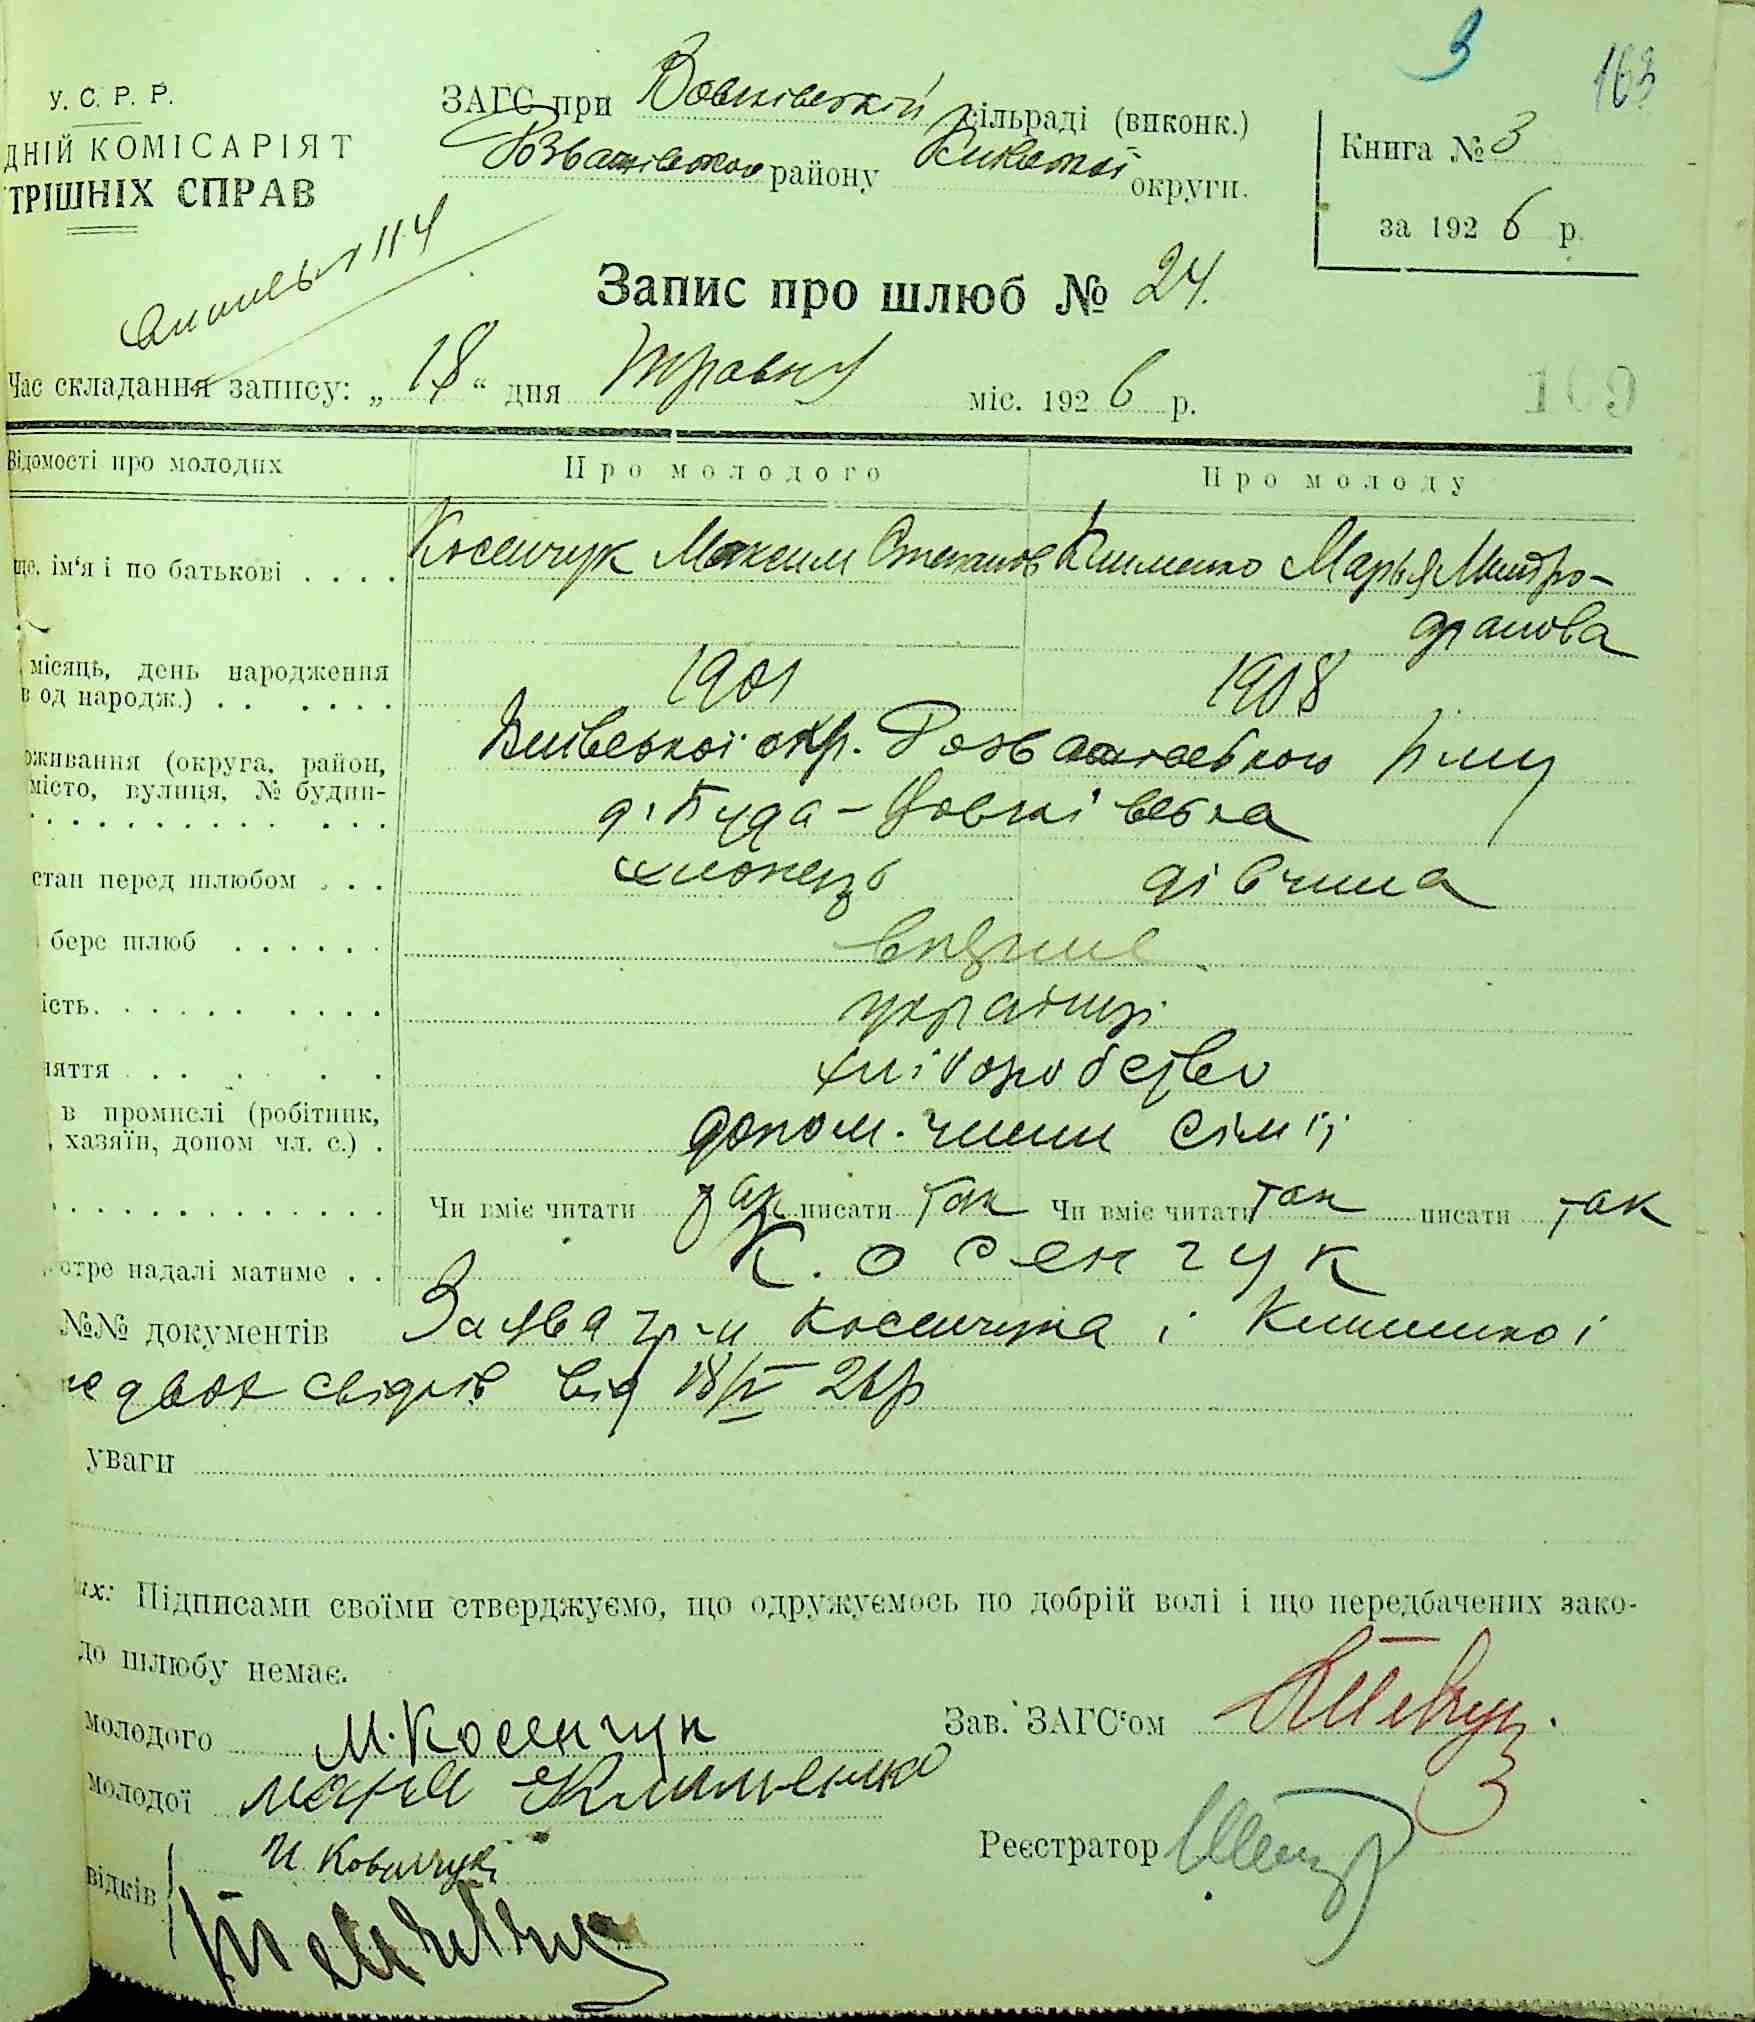 3
163
У. С. Р. Р.
ДНІЙ КОМІСАРІЯТ
ТРІШНІХ СПРАВ
ЗАГС при Вовківській сільраді (виконк.)
Розважівського району Київської округи.
Книга № 3
за 1926 р.
114
Запис про шлюб № 24.
Час складання запису: „18“ дня травня міс. 1926 р.
109
Відомості про молодих
Про молодого
Про молоду
ще, ім‘я і по батькові . . . .
Косенчук Максим Степанов
Клименко Марья Митро-
фанова
місяць, день народження
в од народж.) . . . . . .
1901
1908
оживання (округа, район,
місто, вулиця, № будин-
Київської окр. Розважівського р-ну
д. Буда-Вовківська
стан перед шлюбом . . .
хлопець
дівчина
бере шлюб . . . . . .
вперше
ість. . . . . . . . . .
українці
няття . . . . . .
хліборобство
в промислі (робітник,
, хазяїн, допом чл. с.) .
допом. члени сімї
Чи вміє читати так писати так Чи вміє читати так писати так
отре надалі матиме . .
Косенчук
№№ документів Заява гр-н Косенчука і Клименко і
двох свідків від 18/V 26р
уваги
их: Підписами своїми стверджуємо, що одружуємось по добрій волі і що передбачених зако-
до шлюбу немає.
молодого М. Косенчук
Зав. ЗАГС‘ом
молодої Марія Клименко
Реєстратор
відків
И. Ковальчук